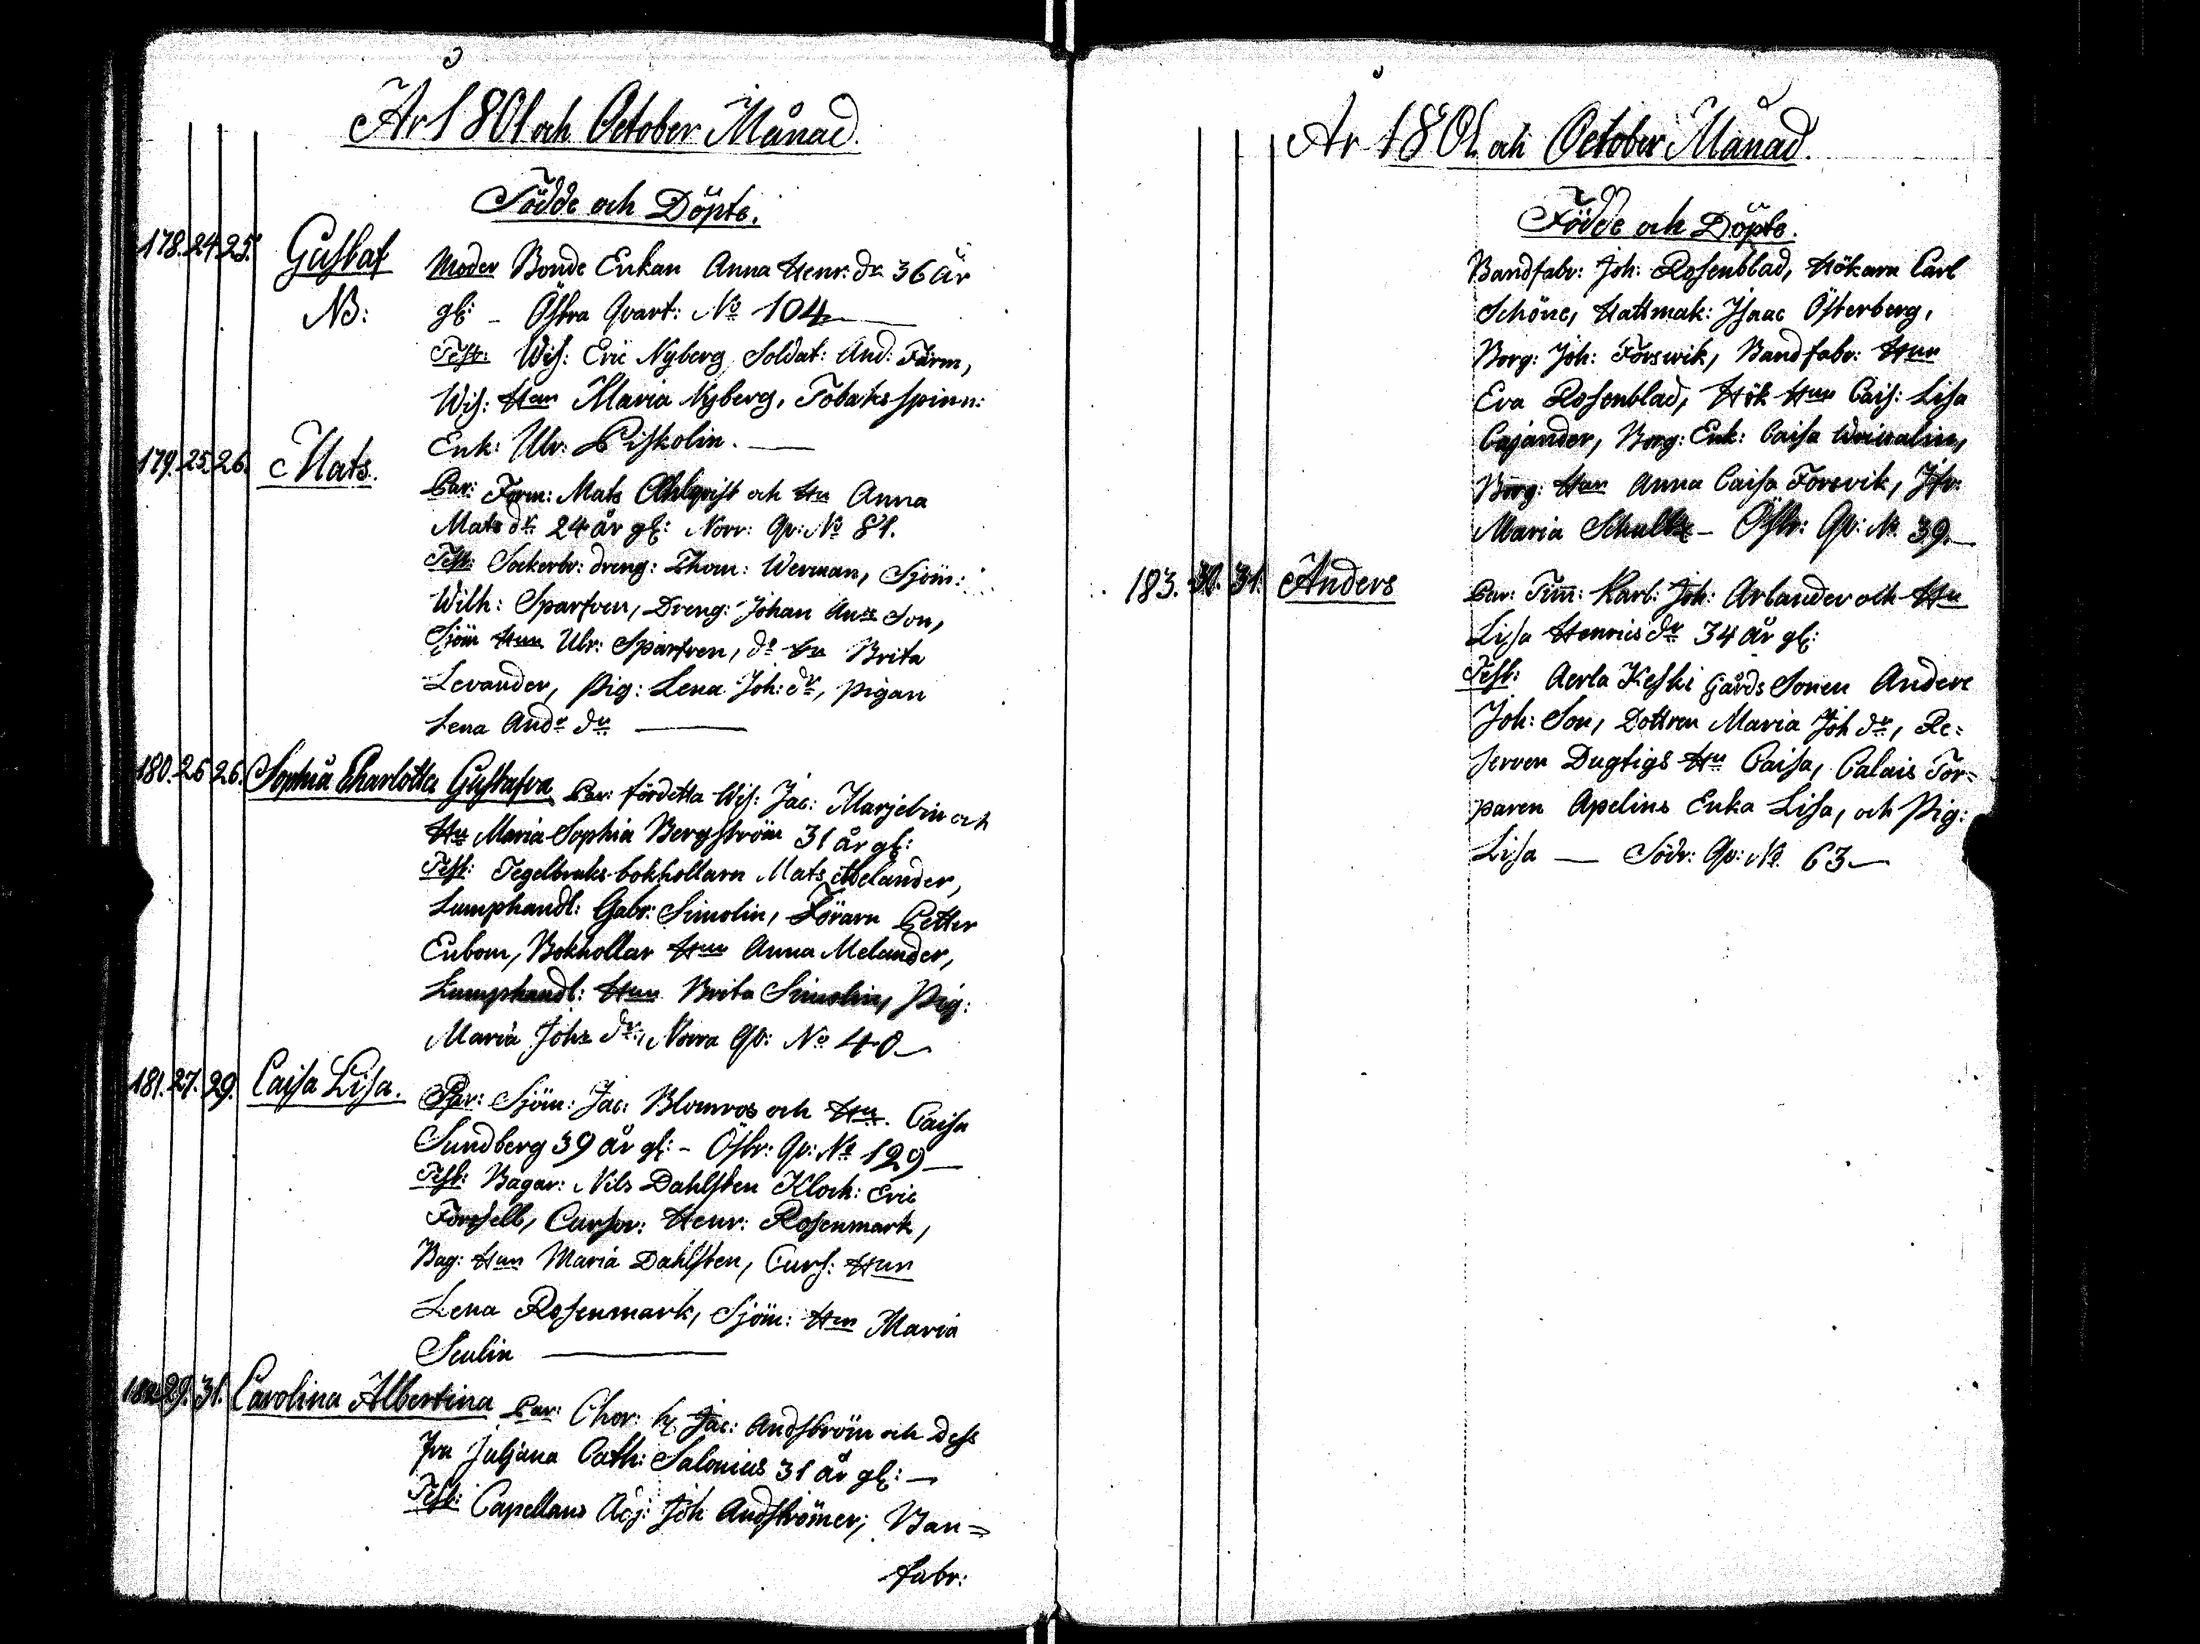 År 1801 och October Månad.
Födde och Döpte.
178. 24. 25. Gustaf Moder Bonde Enkan Anna Henr: dr 36 år
NB: gl: - Östra Qvart: No 104
Test: Wis: Eric Nyberg Soldat: And: Färm,
Wis: Hun Maria Nyberg, Tobaksspinn:
Enk: Ulr: Piskolin.
179. 25. 26. Mats. Par: Form: Mats Ahlqvist och Hu Anna
Mats dr. 24 år gl: Norr: Qv: No 81.
Test: Sockerbr: dreng: Thom: Werman, Sjöm:
Wilh: Sparfven, Dreng: Johan Ands Son,
Sjöm Hun Ulr: Sparfven, do Hu Brita
Levander, Pig: Lena Joh: dr, pigan
Lena Andr dr
180. 26 26. Sophia Charlotta Gustafva Par: fördetta Wis: Jac: Marjelin och
Hu Maria Sophia Bergström 31 år gl:
Test: Tegelbruks-bokhollarn Mats Melander,
Lumphandl: Gabr: Simolin, Förarn Petter
Enbom, Bokhollar Hun Anna Melander,
Lumphandl: Hun Brita Simolin, Pig:
Maria Johs dr:, Norra Qv: No 40
181. 27. 29. Caisa Lisa. Par: Sjöm: Jac: Blomros och Hu. Caisa
Sundberg 39 år gl: - Östr: Qv: No 129
Test: Bagar: Nils Dahlsten Klock: Eric
Forssell, Cursor: Henr: Rosenmark,
Bag: Hun Maria Dahlsten, Curs: Hun
Lena Rosenmark, Sjöm: Hun Maria
Seulin
182 29. 31. Carolina Albertina Par: Chor: h. Jac: Andström och dess
fru Juljana Cath: Salonius 31 år gl:
Test: Capellans Adj: Joh Andströmer, Ban=
fabr:
År 1801 och October Månad.
Födde och Döpte.
Bandfabr: Joh: Rosenblad, Hökarn Carl
Schöne, Hattmak: Isaac Österberg,
Borg: Joh: Forswik, Bandfabr: Hun
Eva Rosenblad, Hök Hun Cais: Lisa
Cajander, Borg: Enk: Caisa
Borg: Hun Anna Caisa Forsvik, Jfr:
Maria Schultz - Östr: Qv: No. 39.
183. 30. 31. Anders Par: Tim: Karl: Joh: Arlander och Hu
Lisa Henrics dr 34 år gl:
Test: Aerla Keski Gårds Sonen Anders
Joh: Son, Dottren Maria Joh dr, Re=
serven Dugtigs Hu Caisa, Calais Tor=
paren Apelins Enka Lisa, och Pig:
Lisa — Södr: Qv: No. 63